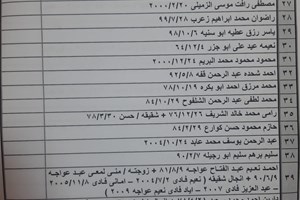 ٢٧ مصطفى رأفت موسى الزميلي ٢٠٠٠/٢/٢٠
٢٨ راضوان محمد ابراهيم زعرب ٩٩/٧/٢٨
٢٩ ياسر رزق عطيه ابو سنيه ٩٨/١٠/٦
٣٠ نعيمه عبد علي ابو جزر ٦٤/١٢/٤
٣١ محمود محمود محمد البريم ٢٠٠٠/١٢/٤
٣٢ احمد شحده عبد الرحمن قفه ٩٢/٥/٨
٣٣ محمد مرزق احمد ابو بكره ٧٨/١٠/١٩
٣٤ محمد لطفى عبد الرحمن الشلفوح ٨٤/١٠/٢٩
٣٥ رامي محمد خالد الشريف ٧٦/١٢/٢٦ + شقيقه / حسن ٧٨/٣/٣٠
٣٦ حازم محمود حسن كوارع ٨٤/١٠/٦
٣٧ عبد الرحمن يوسف محمد عابد ٢٠٠٤/١٢/٢٤
٣٨ سليم برهم سليم ابو رجيله ٩٠/٢/٧
٣٩ احمد نعيم عبد الفتاح عواجه ٨١/٨/٩ + زوجته / منى لمعي عبد عواجه
٩٠/٦/٩ + انجال شقيقه ( نعيم فادي ٢٠٠٤/٧/٢ – اماني فادي ٢٠٠٥/١١/٨
– عبد العزيز فادي ٢٠٠٧ – اياد فادي نعيم عواجه ٢٠٠٩ )